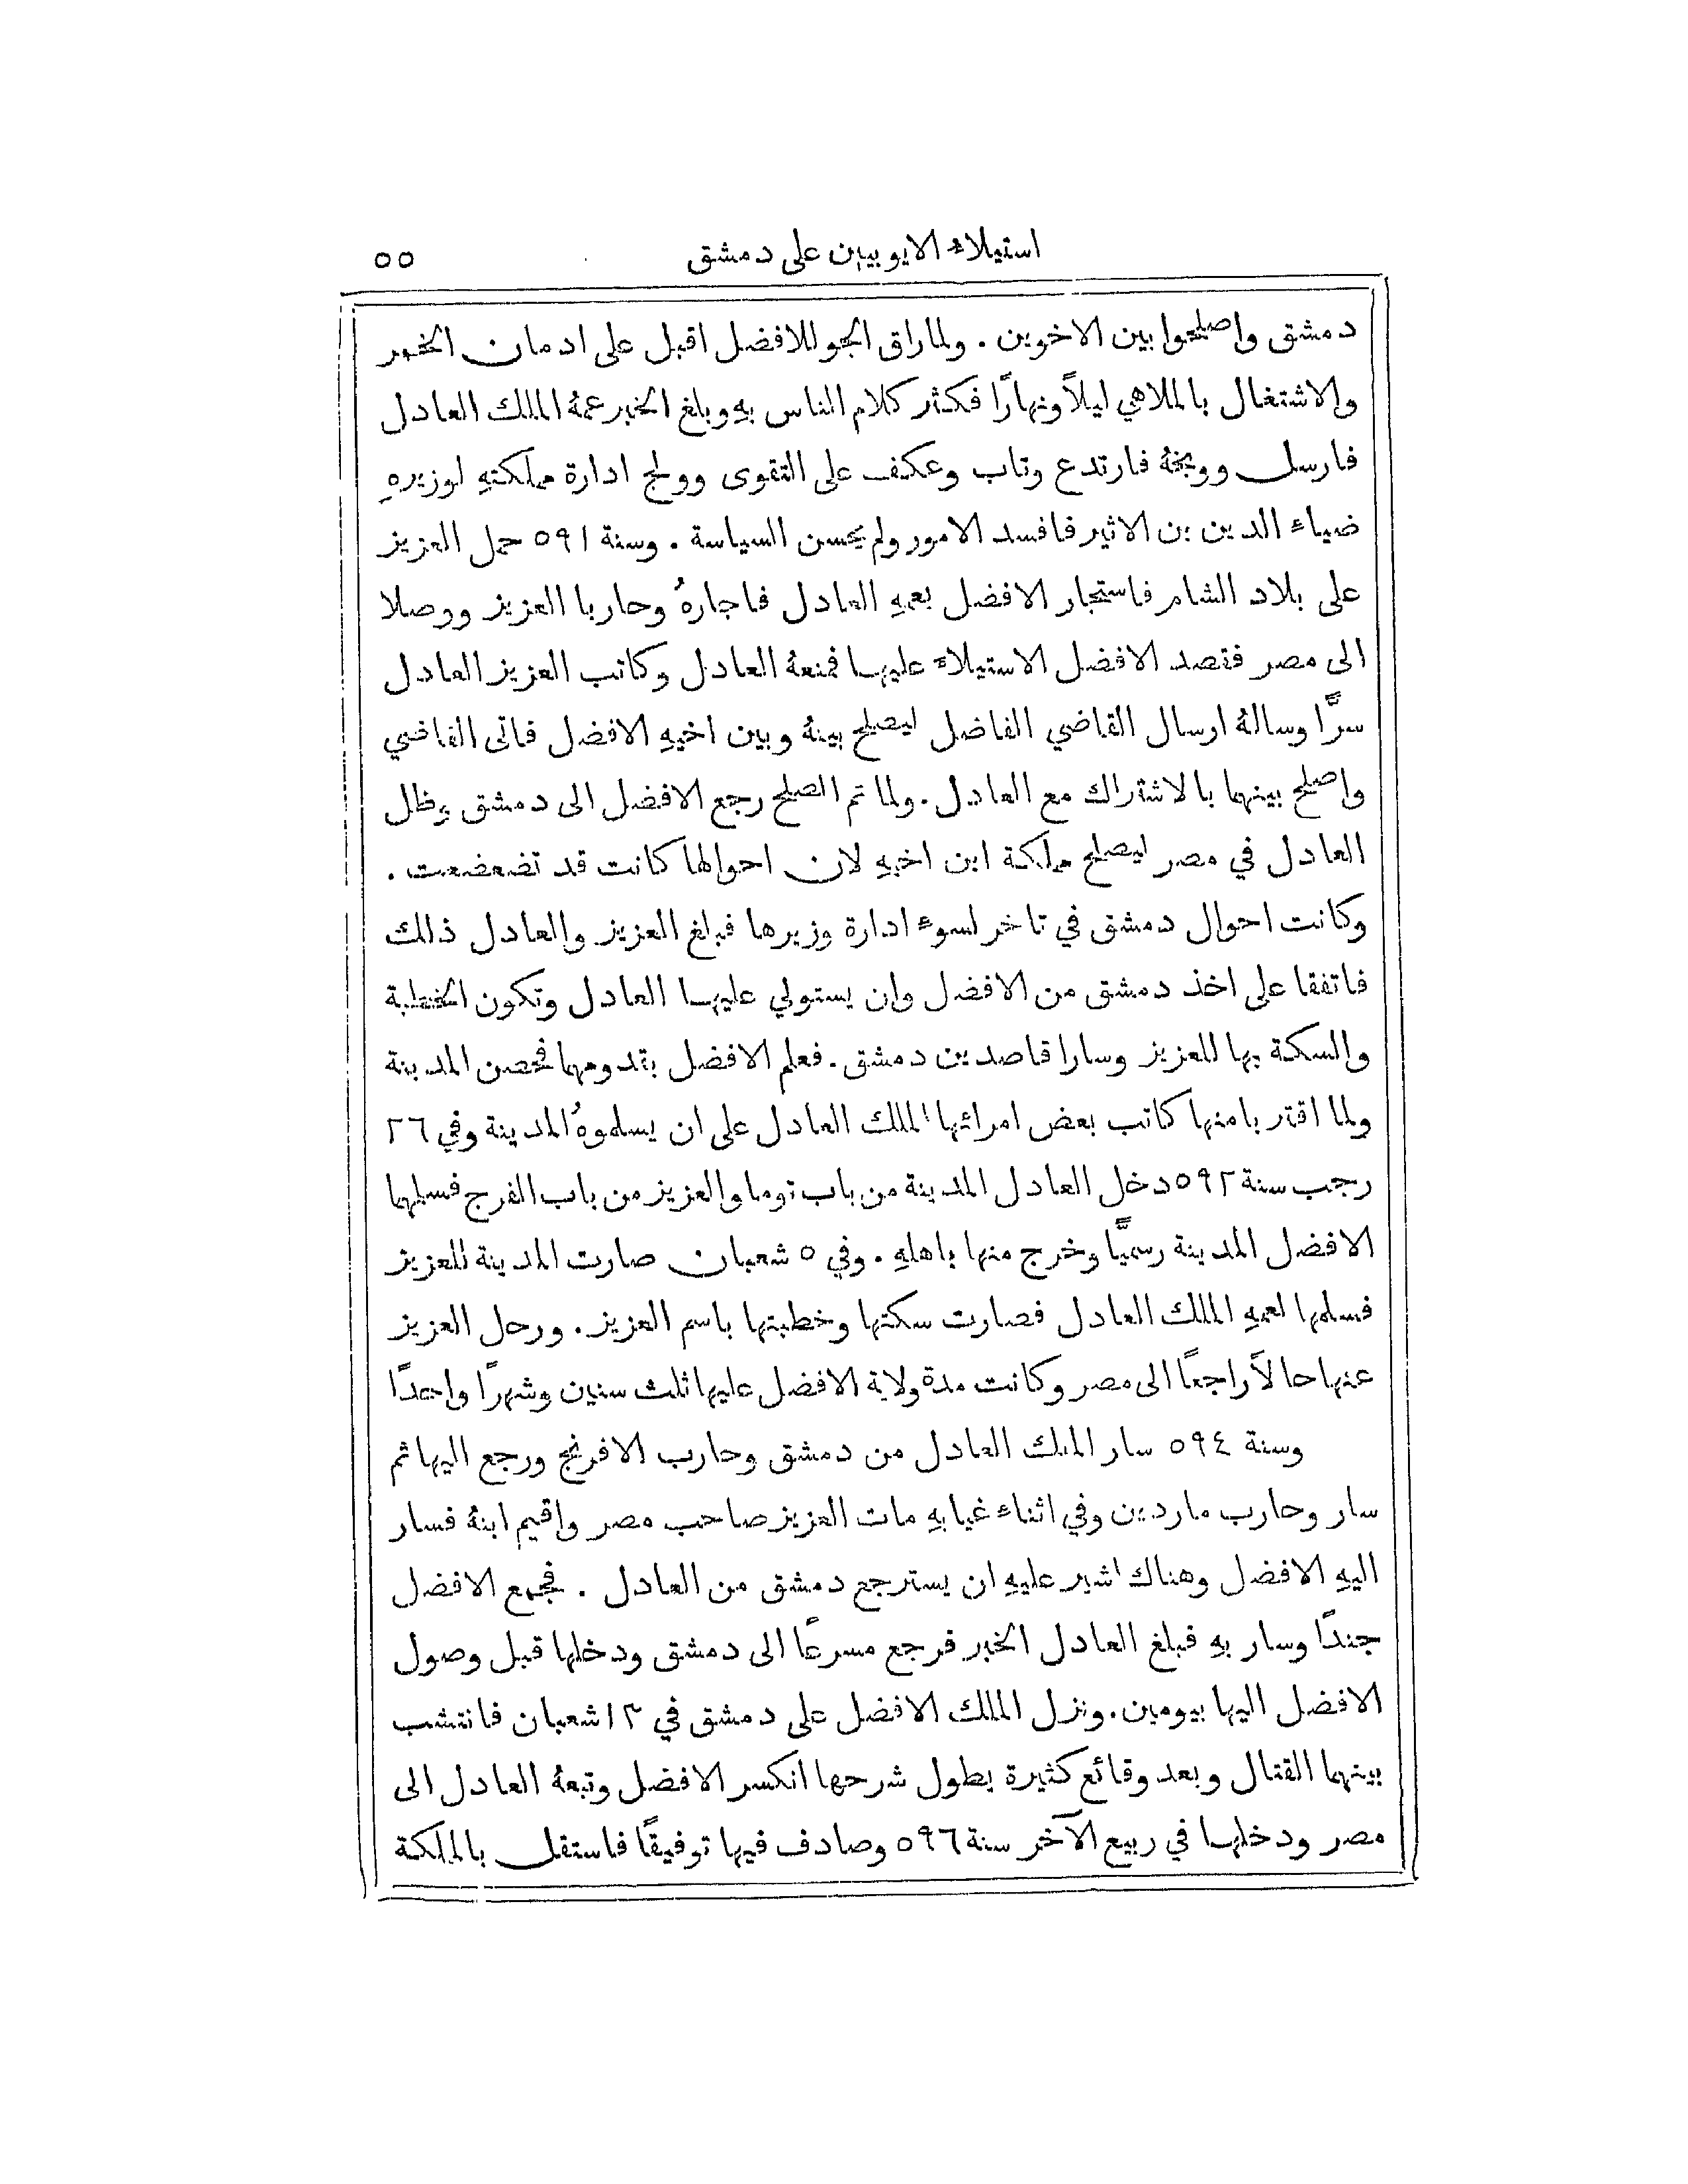 استيلاء الايوبيين على دمشق ٥٥
دمشق واصلحوا بين الاخوين . ولما راق الجو للافضل اقبل على ادمان الخمر
والاشتغال بالملاهي ليلاً ونهارًا فكثر كلام الناس بهِ وبلغ الخبر عمهُ الملك العادل
فارسل ووبخهُ فارتدع وتاب وعكف على التقوى وولج ادارة مملكتهِ لوزيرهِ
ضياء الدين بن الاثير فافسد الامور ولم يحسن السياسة . وسنة ٥٩١ حمل العزيز
على بلاد الشام فاستجار الافضل بعمهِ العادل فاجارهُ وحاربا العزيز ووصلا
الى مصر فقصد الافضل الاستيلاء عليها فمنعهُ العادل وكاتب العزيز العادل
سرًّا وسالهُ ارسال القاضي الفاضل ليصلح بينهُ وبين اخيهِ الافضل فاتى القاضي
واصلح بينهما بالاشتراك مع العادل . ولما تم الصلح رجع الافضل الى دمشق وظل
العادل في مصر ليصلح مملكة ابن اخيهِ لان احوالها كانت قد تضعضعت .
وكانت احوال دمشق في تاخر لسوء ادارة وزيرها فبلغ العزيز والعادل ذلك
فاتفقا على اخذ دمشق من الافضل وان يستولي عليها العادل وتكون الخطبة
والسكة بها للعزيز وسارا قاصدين دمشق . فعلم الافضل بقدومهما فحصن المدينة
ولما اقتربا منها كاتب بعض امرائها الملك العادل على ان يسلموهُ المدينة وفي ٢٦
رجب سنة ٥٩٢ دخل العادل المدينة من باب توما والعزيز من باب الفرج فسلمهما
الافضل المدينة رسميًّا وخرج منها باهلهِ . وفي ٥ شعبان صارت المدينة للعزيز
فسلمها لعمهِ الملك العادل فصارت سكتها وخطبتها باسم العزيز . ورحل العزيز
عنها حالاً راجعًا الى مصر وكانت مدة ولاية الافضل عليها ثلث سنين وشهرًا واحدًا
وسنة ٥٩٤ سار الملك العادل من دمشق وحارب الافرنج ورجع اليها ثم
سار وحارب ماردين وفي اثناء غيابهِ مات العزيز صاحب مصر واقيم ابنهُ فسار
اليهِ الافضل وهناك اشير عليهِ ان يسترجع دمشق من العادل . فجمع الافضل
جندًا وسار بهِ فبلغ العادل الخبر فرجع مسرعًا الى دمشق ودخلها قبل وصول
الافضل اليها بيومين . ونزل الملك الافضل على دمشق في ١٣ شعبان فانتشب
بينهما القتال وبعد وقائع كثيرة يطول شرحها انكسر الافضل وتبعهُ العادل الى
مصر ودخلها في ربيع الآخر سنة ٥٩٦ وصادف فيها توفيقًا فاستقل بالملكة